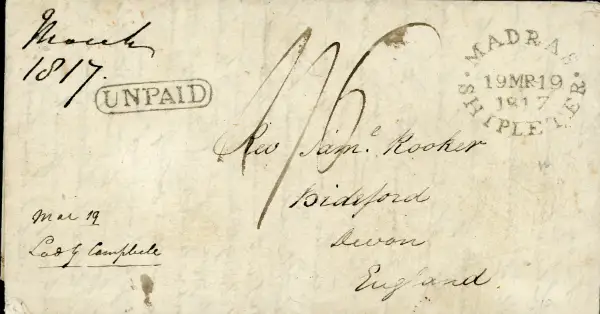 March
1817.
UNPAID
1/6
MADRAS
19MR19
1817
SHIPLETER
Rev Samᵉ. Rooker
Bideford
Devon
England.
Mar 19
Lady Campbell